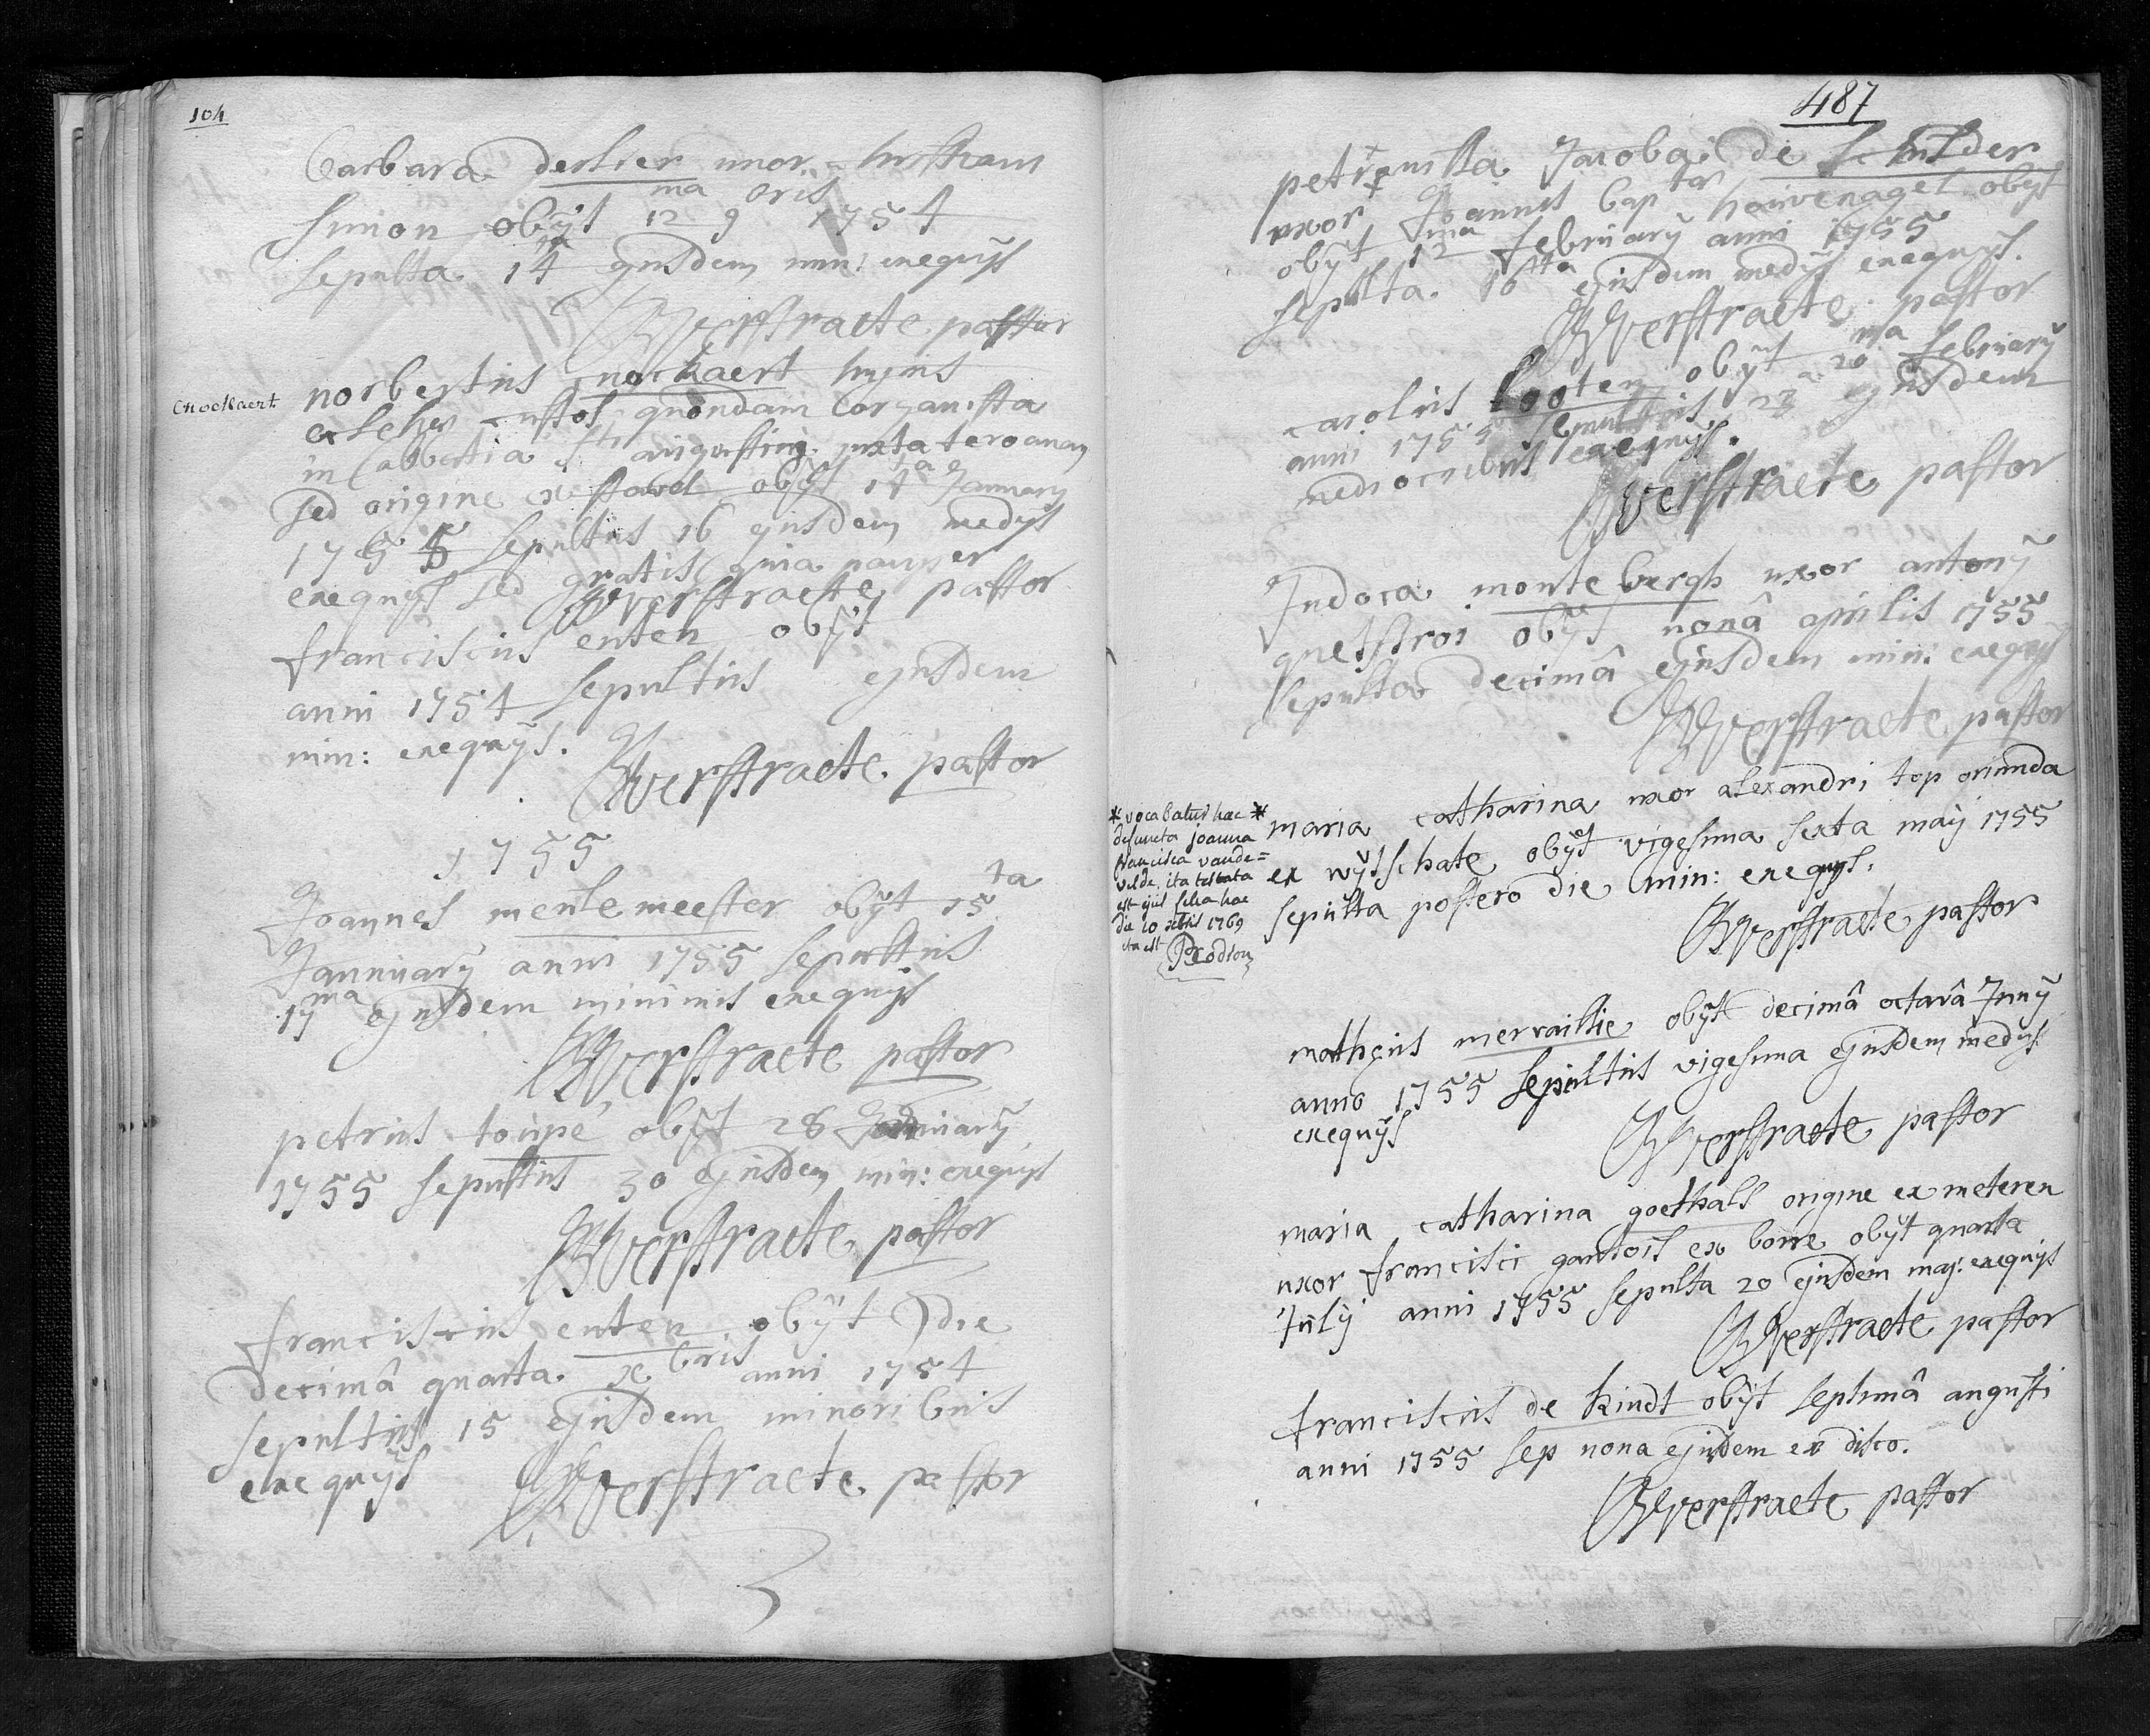 104
Barbara derlier uxor
Simon obÿt 12ma 9bris 1754
sepulta 14ta ejusdem min: exequÿs
Verstraete pastor
Cnockaert
norbertus nockaert hujus
custos quondam organista
in abbatia Sti augustini juxta teroanam
sed origine ex stavel obÿt 14a January
1755 sepultus 16 ejusdem medÿs
exequÿs sed gratis quia pauper
Verstraete pastor
franciscus enten obÿt
anni 1754 sepultus ejusdem
min: exequÿs.
Verstraete pastor
1755
Joannes meulemeester obÿt 15ta
Jannuarÿ anni 1755 sepultus
17ma ejusdem minimis exequÿs
Verstraete pastor
petrus toupé obÿt 28 Januarÿ
1755 sepultus 30 ejusdem min: exequÿs
Verstraete pastor
franciscus enten obÿt die
decimâ quarta xbris anni 1754
sepultus 15 ejusdem minoribus
exequÿs Verstraete pastor
487
Jacoba de schilder
uxor Joannis bapta houvenagel obÿt
obÿt 12ma februarÿ anni 1755
sepulta 16ta ejusdem medÿs exequÿs.
Verstraete pastor
carolus looten obÿt 20ma februarÿ
anni 1755 sepultus ejusdem
mediocribus exequÿs.
Verstraete pastor
Judoca montebergh uxor antonÿ
quetstroi obÿt nonâ aprilis 1755
sepulta decimâ ejusdem min: exequÿs
Verstraete pastor
* vocabatur haec *
defuncta joanna
francisca vande=
velde, ita testata
est ejus filia hac
die 20 xbris 1769
ita est
maria catharina uxor alexandri top oriunda
ex wÿtschate obÿt vigesima sexta maÿ 1755
sepulta postero die min: exequÿs.
Verstraete pastor
matheus mervaillie obÿt decimâ octavâ Junÿ
anno 1755 sepultus vigesima ejusdem medÿs
exequÿs
Verstraete pastor
maria catharina goethals origine ex meteren
uxor francisci gantois ex borre obÿt quarta
Julÿ anni 1755 sepulta 20 ejusdem maj: exequÿs
Verstraete pastor
franciscus de kindt obÿt septimâ augusti
anni 1755 sep nona ejusdem ex disco.
Verstraete pastor